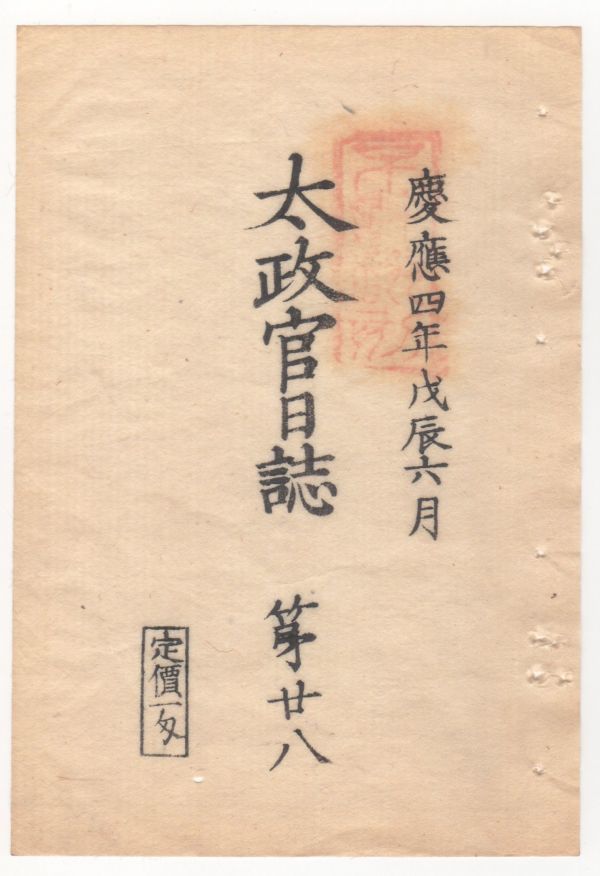 慶應四年戊辰六月
太政官日誌 第廿八
定價一匁